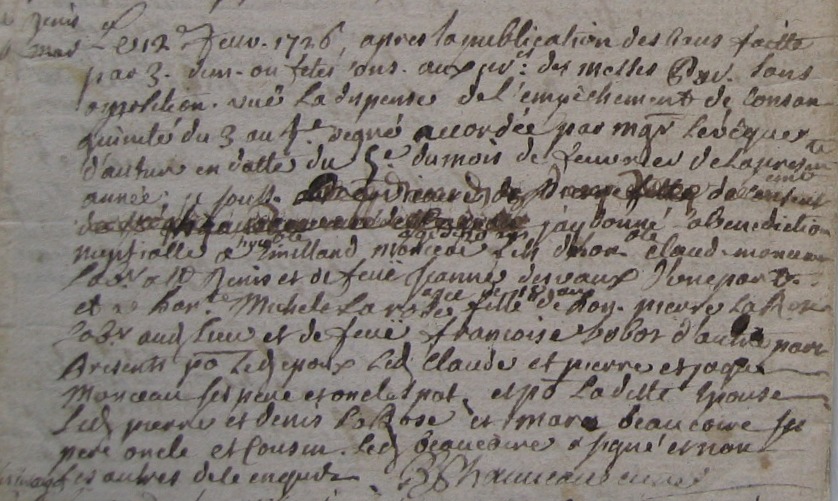 Le 12e feuv. 1726, apres la publication des bans faitte
par 3. dim. ou fetes cons. aux pr. des messes par. sans
opposition. vuë la dispense de l'empêchement de consan
guinité du 3 au 4e degré accordée par mgr levêque
d'autun en datte du 5e du mois de feuvrier de la presente
année, je souss. de
j'ay donné la benediction
nuptialle a émilland monceau fils d'hon. claud monceau
lab. a st denis et de feüe Jeanne devaux d'une part
et a hon. Michele La rose agée de 18 ans fille de hon. pierre La Rose
lab. aud lieu et de feuë francoise bobot d'autre part
presents po. led epoux led claude et pierre et
monceau ses pere et oncles pat. et po. laditte epouse
led pierre et denis la Rose et marc beaucaire ses
pere oncle et cousin. led beaucaire a signé et non
les autres de ce enquis